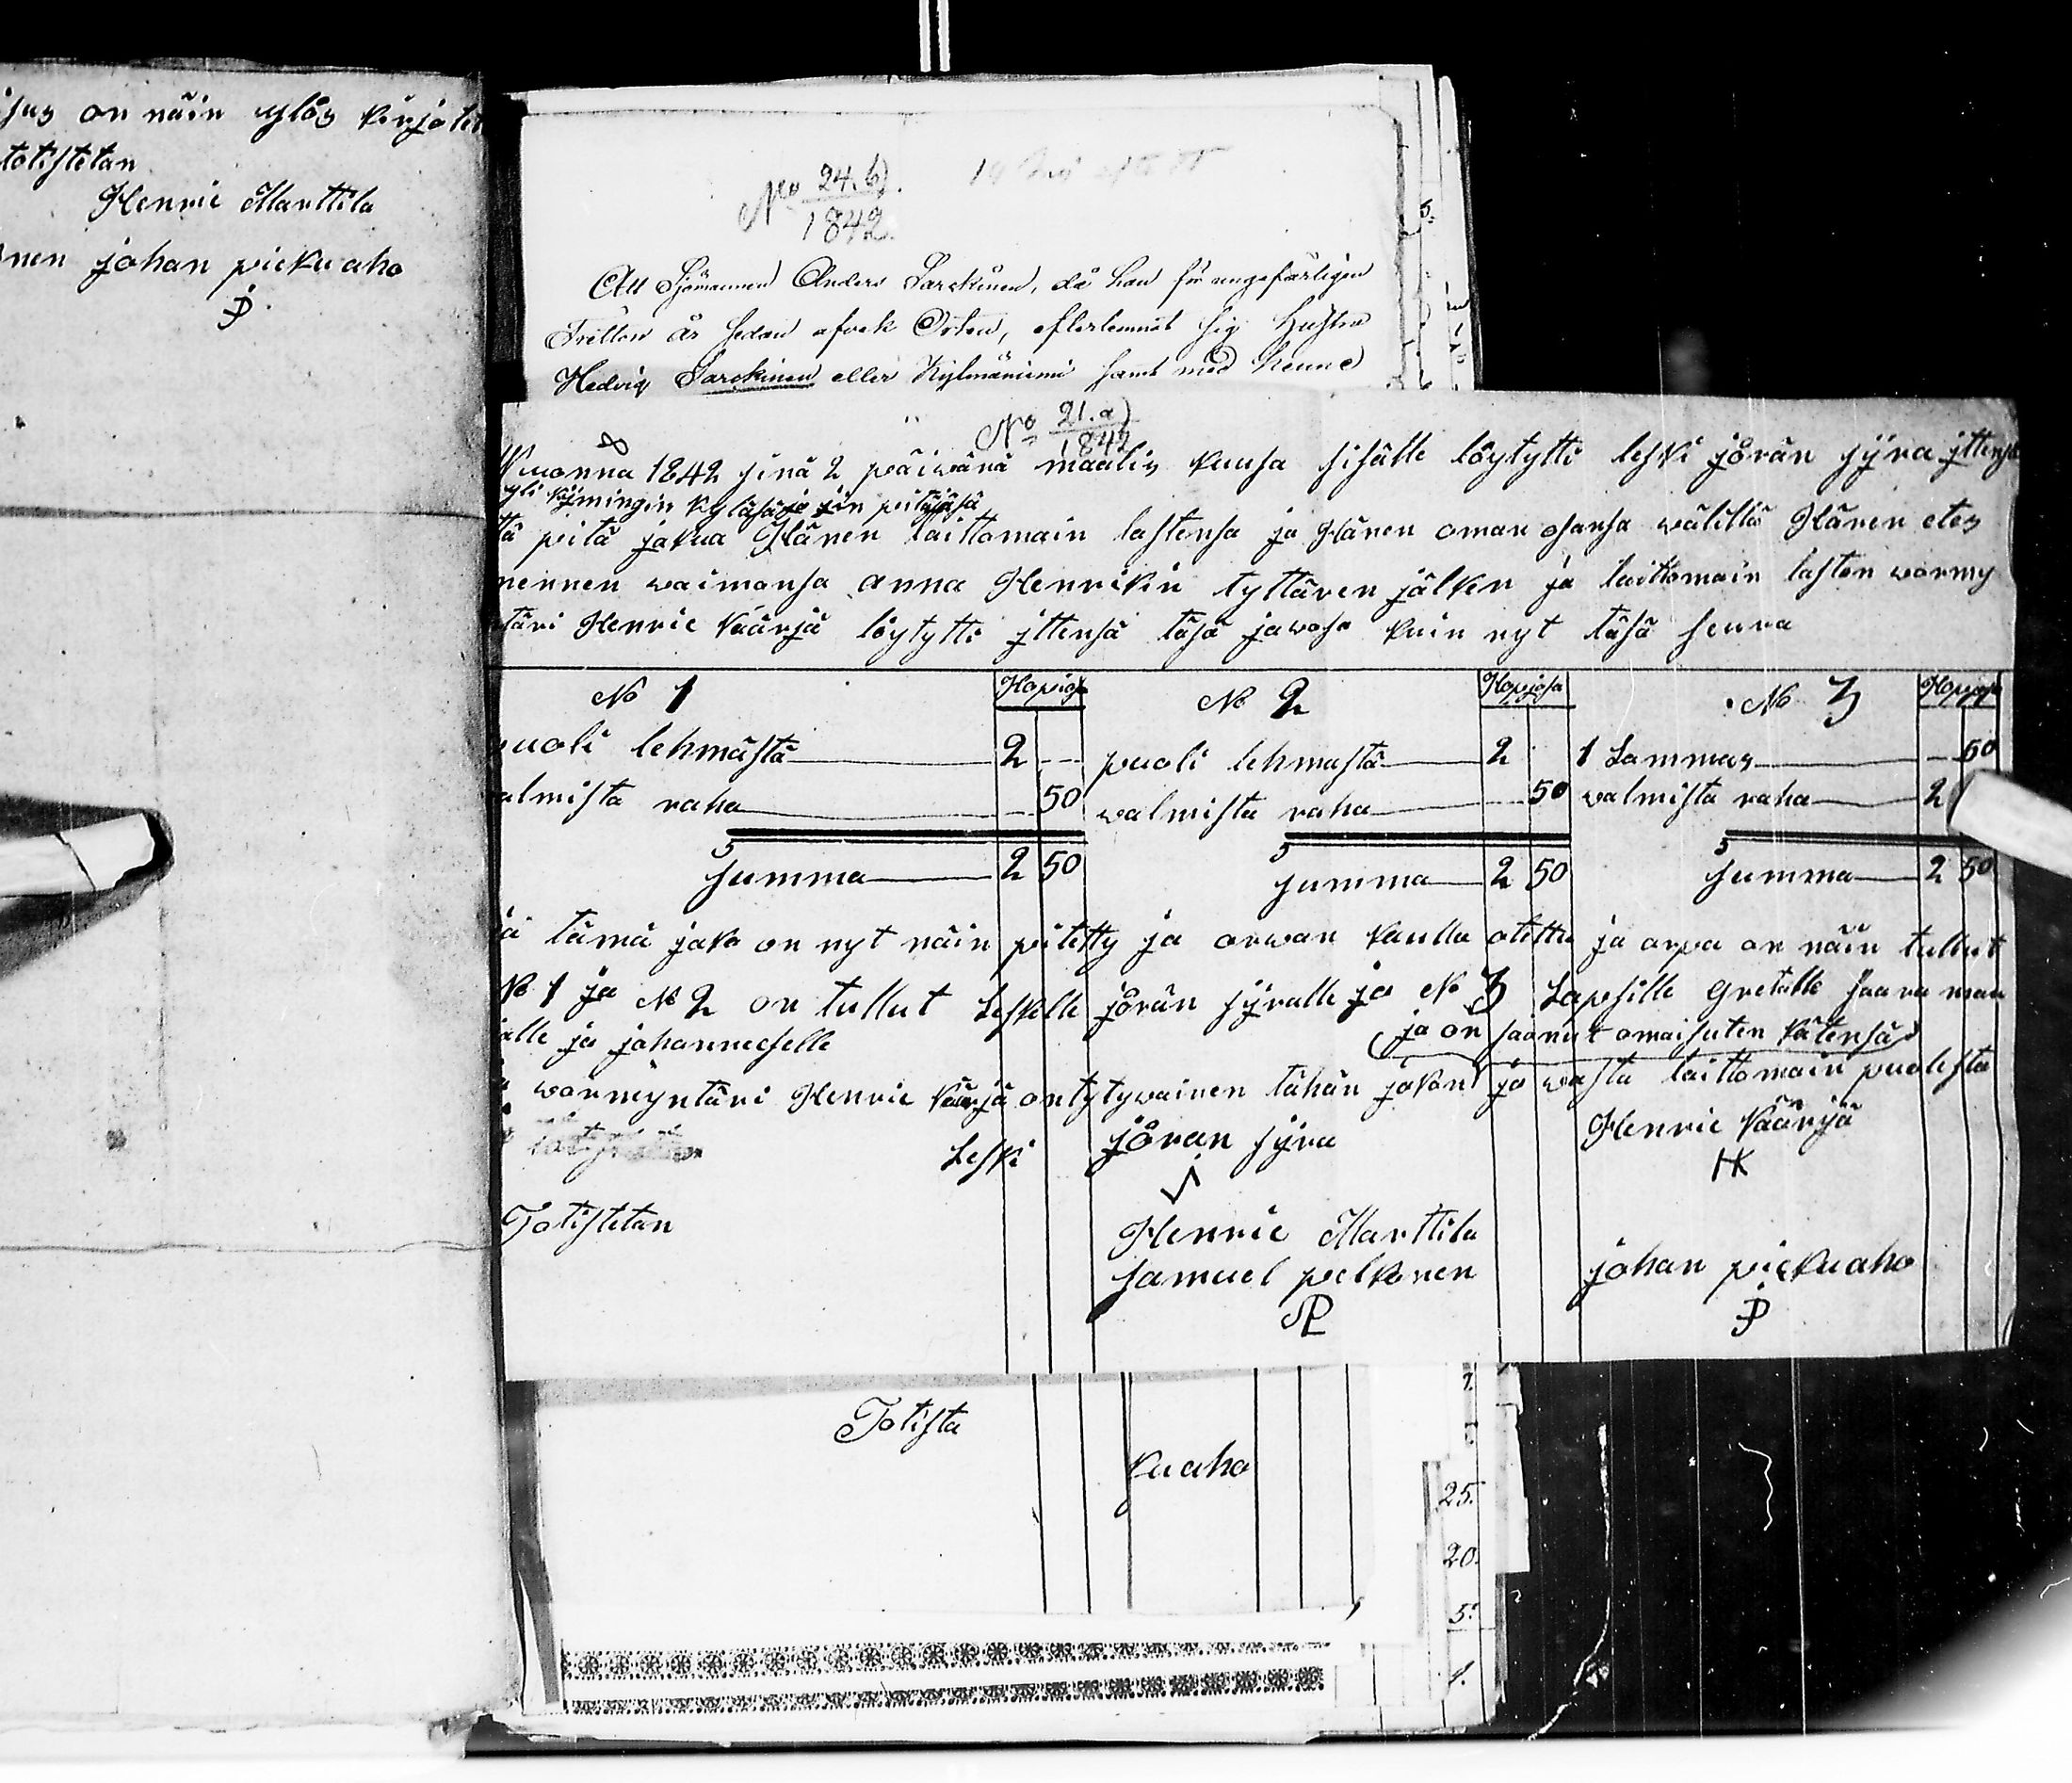 on näin ylös kirjotet
totistetan
Henric Marttila
nen johan pickuaho
JP
No 24.b)
1842
Att Sjömannen Anders Sarckinen, då han för ungefärligen
Tretton år sedan afvek Orten, efterlemnat sig Hustru
Hedvig Sarckinen eller Kylmäniemi samt med henne
No 21.a)
1842
Wuonna 1842 sinä 2 päiwänä maalis kuusa sisälle löytytti leski jörän syra jttensä
yli kijmingin kyläsä ja jin pitäjäsä
tä pitä jakua Hänen laittomain lastensa ja Hänen oman osansa wälillä Hänen etes
mennen waimonsa anna Henrikin tyttären jälken ja laittomain lasten wormy
täri Henric Käärjä löytytti jttensä täsä jawosa kuin nyt täsä seura
No 1 Hopiasa No 2 Hopiasa No 3 Hopiasa
puoli lehmästä 2 -- puoli lehmastä 2 1 Lammas -- 50
walmista raha -- 50 walmista raha -- 50 walmista raha 2
Summa 2 50 Summa 2 50 Summa 2 50
jä tämä jako on nyt näin pitetty ja arwan kaulla otettu ja arpa on näin tullut
No 1 ja No 2 on tullut Leskelle jörän syralle ja No 3 Lapsille gretalle saara maa
alle ja johanneselle (ja on saanut omaisuten kätensä)
wormyntäri Henric Käärjä on tytywainen tähän jakon ja wasta laittomain puolesta
Leski jöran syra Henric Käärjä
HK
Totistetan Henric Marttila
Samuel pelkonen johan pickuaho
SP JP
Totista
kuaho
25.
20.
5.